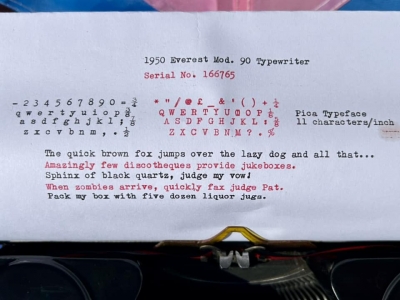 1950 Everest Mod. 90 Typewriter
Serial No. 166765
- 2 3 4 5 6 7 8 9 0 = ¾ * " / @ £ _ & ' ( ) + ¼
q w e r t y u i o p ⅜ Q W E R T Y U I O P ⅝ Pica Typeface
a s d f g h j k l ; ⅞ A S D F G H J K L : ⅛ 11 characters/inch
z x c v b n m , . ½ Z X C V B N M ? . %
The quick brown fox jumps over the lazy dog and all that...
Amazingly few discotheques provide jukeboxes.
Sphinx of black quartz, judge my vow!
When zombies arrive, quickly fax judge Pat.
Pack my box with five dozen liquor jugs.